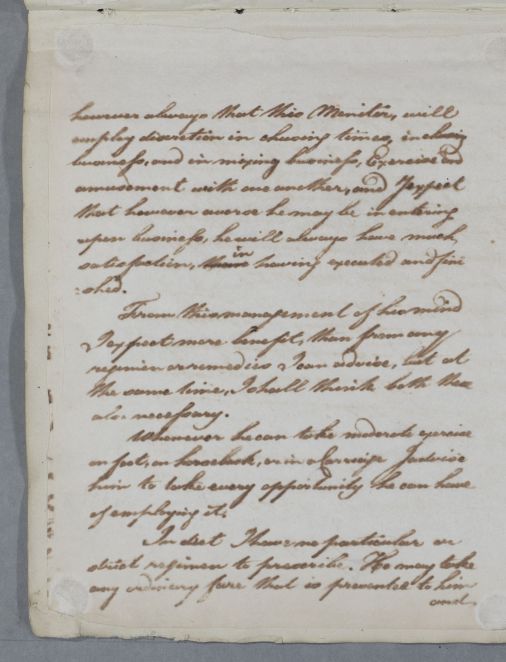 however always that this Monitor, will
employ discretion in chusing times, in chusing
business, and in mixing business, Exercise and
amusement with one another, and I expect
that however averse he may be in entering
upon business, he will always have much
satisfaction, in having executed and fini
:shed.
From this management of his mind
I expect more benefit, than from any
regimen or remedies I can advise, but at
the same time, I shall think both these
also necessary.
Whenever he can take moderate exercise
on foot, on horseback, or in a Carriage I advise
him to take every opportunity he can have
of employing it.
In diet I have no particular or
strict regimen to prescribe. He may take
any ordinary fare that is presented to him
and